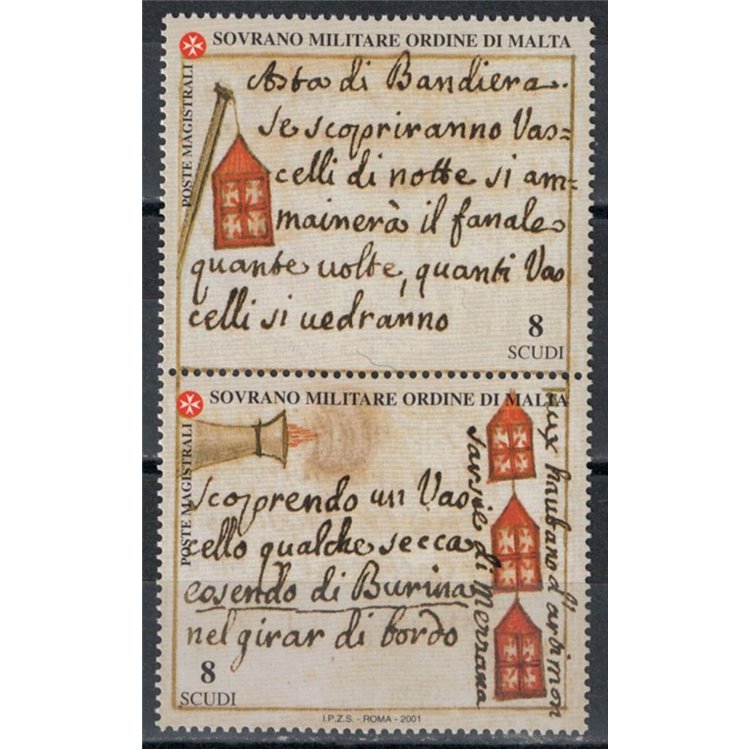 SOVRANO MILITARE ORDINE DI MALTA
POSTE MAGISTRALI
Asta di Bandiera.
se scopriranno Vas=
celli di notte si am=
mainerà il fanale
quante volte, quanti Vas
celli si vedranno
8
SCUDI
SOVRANO MILITARE ORDINE DI MALTA
POSTE MAGISTRALI
scoprendo un Vas
cello qualche secca
eosendo di Burina
nel girar di bordo
aux haubano d'artimon
sarsie di Mezzana
8
SCUDI
I.P.Z.S. - ROMA - 2001